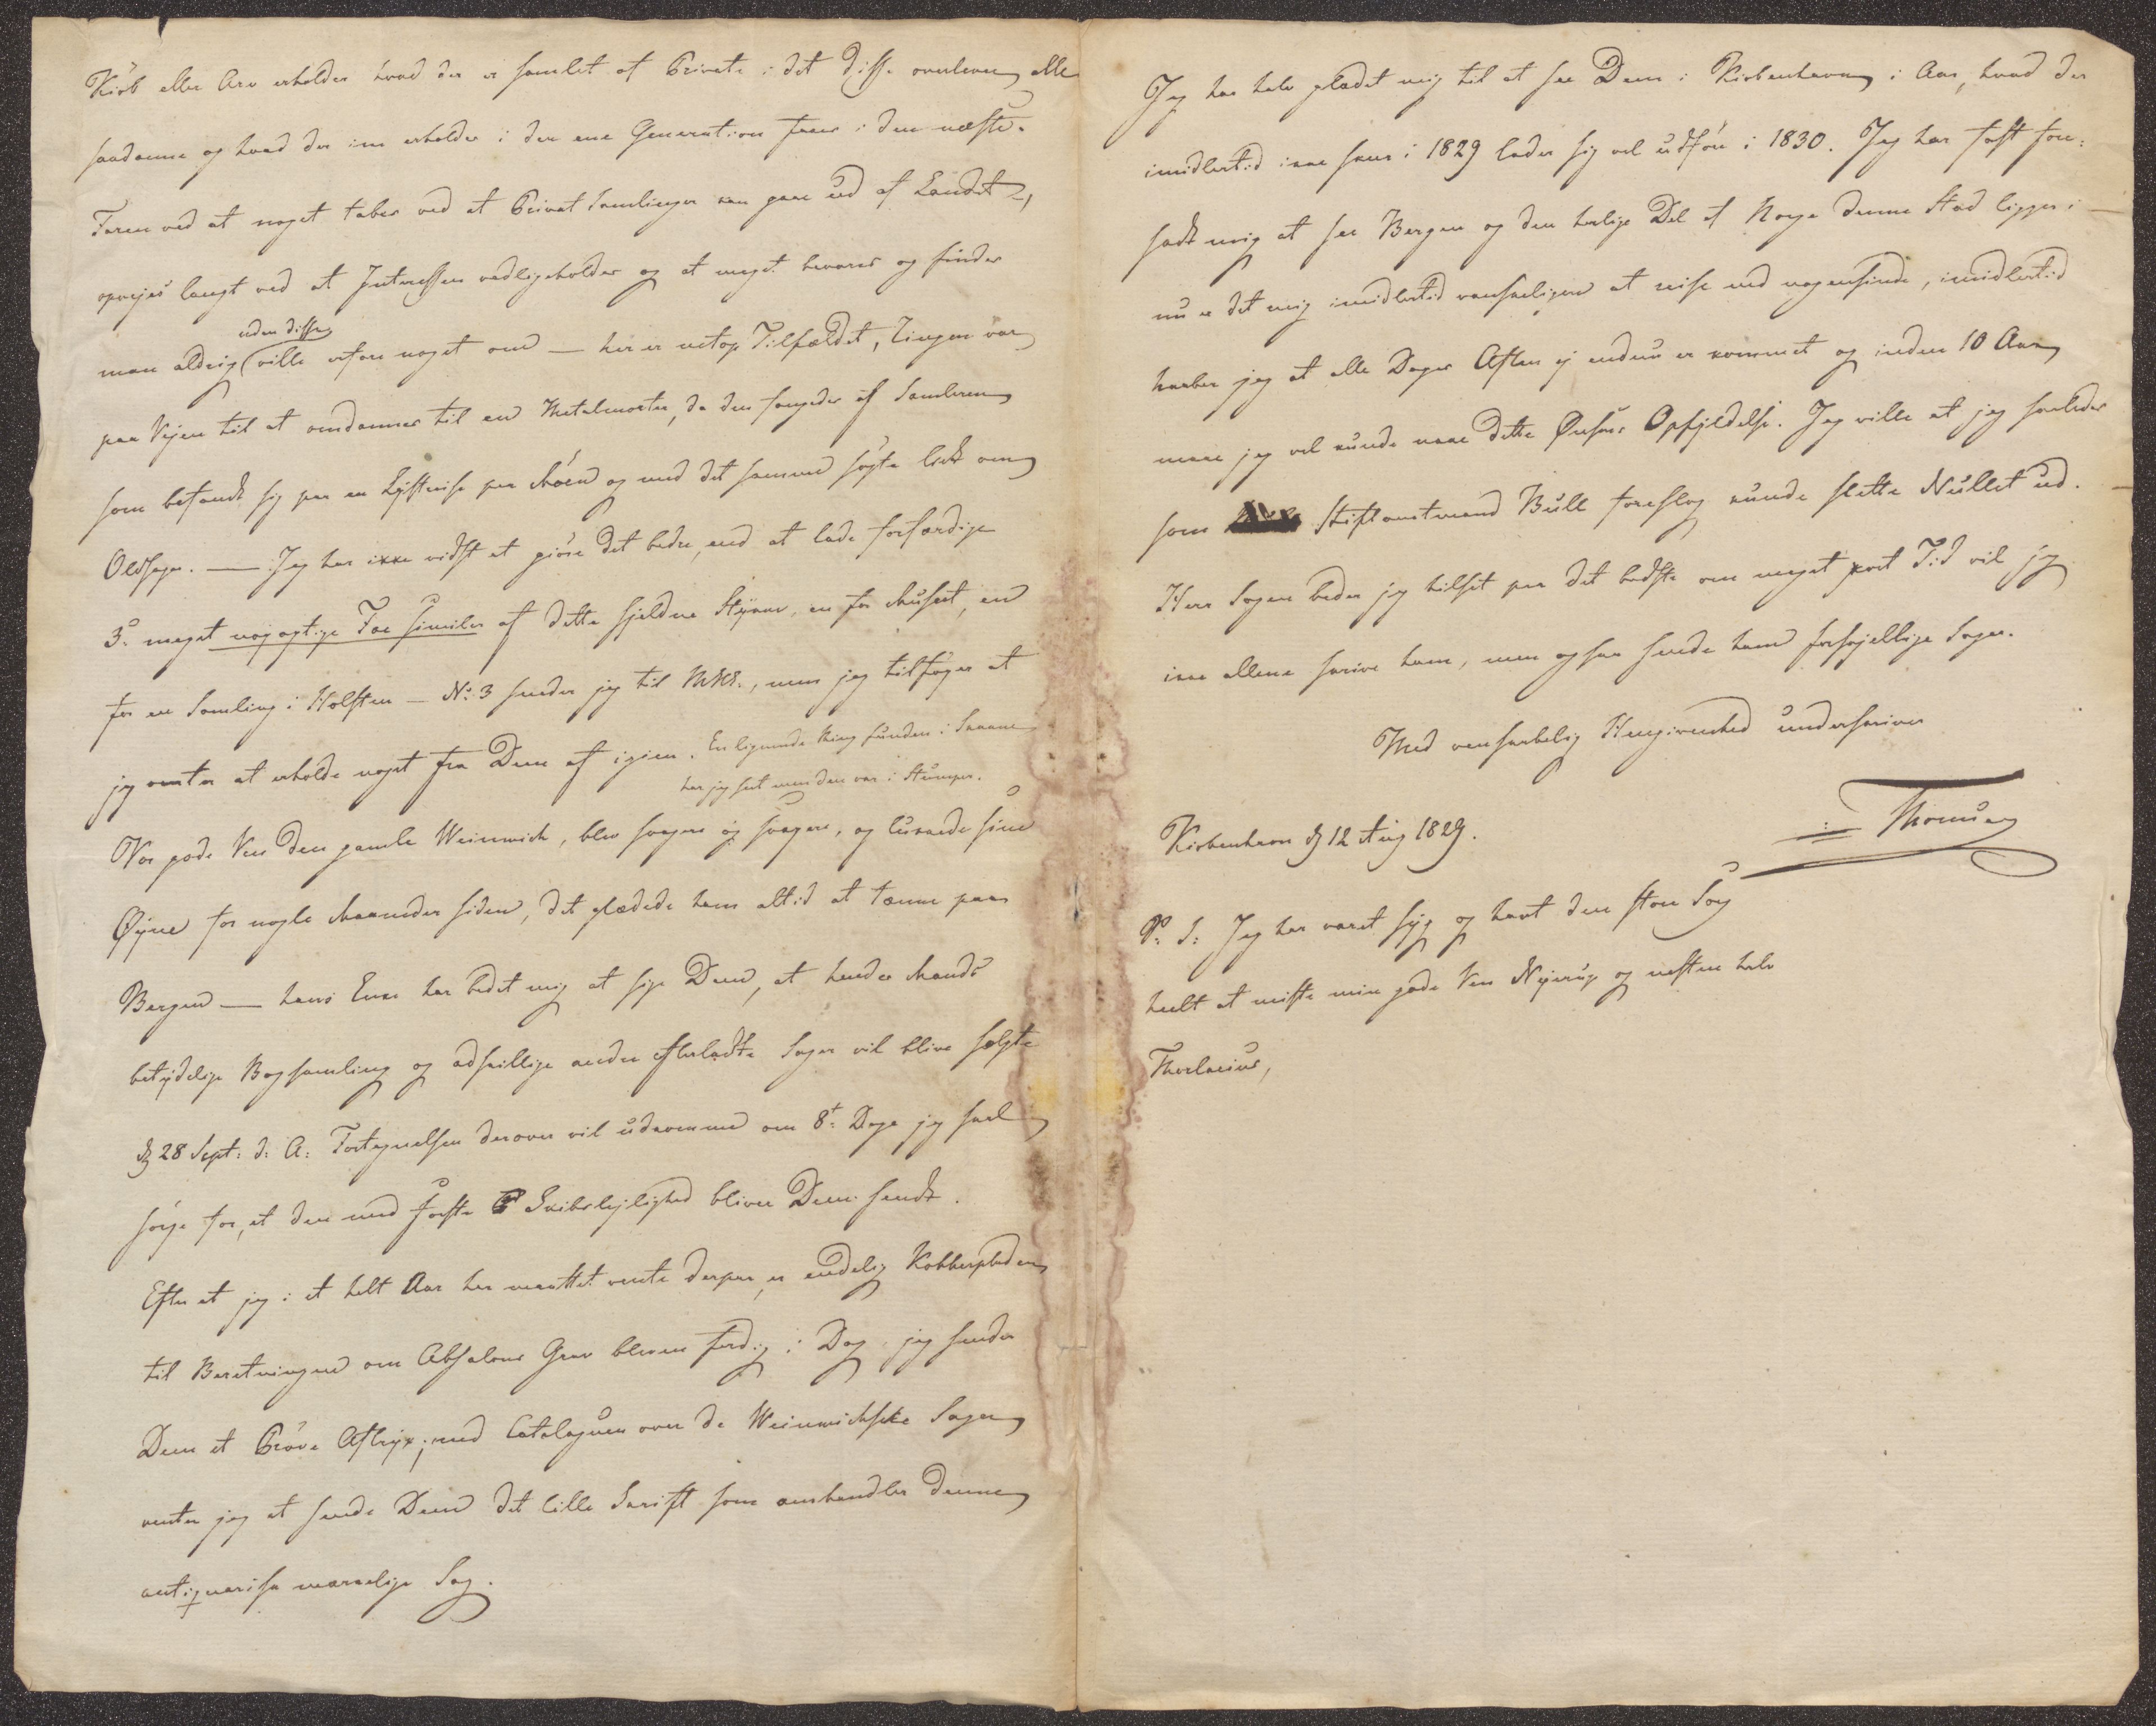 Kiöb eller Arv erholder hvad der er samlet af Private i det disse overleveres alle
saadanne og hvad der ini erholdes i den ene Generation faaes i den næste.
Faren ved at noget tabes ved at Privat Samlinger kan gaae ud af Landet,
opvejes langt ved at Interessen vedligeholdes og at meget bevares og findes
uden disse
man aldrig ville erfare noget om — her er netop Tilfældet, Tingen var
paa Vejen til at omdannes til en Metalmorter, da den fangedes af Samleren
som befandt sig paa en Lystreise paa Möen og med det samme søgte lidt om
Oldsager. — Jeg har ikke vidst at giöre det bedre, end at lade forfærdige
3de meget nöjagtige Fac similer af dette sjeldne Stykke, en for Museet, en
for en Samling i Holsten — No 3 sender jeg til , men jeg tilföjer at
jeg venter at erholde noget fra Dem af igien. En lignende Ring funden i Skaane
har jeg seet men den var i Stumper.
Vor gode Ven den gamle Weinwich, blev svagere og svagere, og lukkede sine
Øyne for nogle Maaneder siden, det glædede ham altid at tænke paa
Bergen — hans Enke har bedet mig at sige Dem, at hendes Mands
betydelige Bogsamling og adskillige andre efterladte Sager vil blive solgte
d 28 Sept: d: A: Fortegnelsen derover vil udkomme om 8te Dage jeg skal
sörge for, at den med förste Skibslejlighed bliver Dem sendt.
Efter at jeg i et helt Aar har maattet vente derpaa, er endelig Kobberpladen
til Beretningen om Absalons Grav bleven færdig i Dag jeg sender
Dem et Pröve Aftryk; med Catalogen over de Weinwichske Sager
venter jeg at sende Dem det lille Skrift som omhandler denne
antiqvariske mærkelige Sag.
Jeg har halv glædet mig til at see Dem i Kiöbenhavn i Aar, hvad der
imidlertid ikke skeer i 1829 lader sig vel udföre i 1830. Jeg har fast fore:
sadt mig at see Bergen og den herlige Del af Norge denne Stad ligger i —
nu er det mig imidlertid vanskeligere at reise end nogensinde, imidlertid
haaber jeg at alle Dages Aften ej endnu er kommet og inden 10 Aar
maae jeg vel kunde naae dette Ønskes Opfyldelse. Jeg ville at jeg saaledes
som Stiftamtmand Bull foreslog kunde slette Nullet ud. —
Herr Sagen beder jeg hilset paa det bedste om meget kort Tid vil jeg
ikke allene skrive ham, men ogsaa sende ham forskjellige Sager.
Med venskabelig Hengivenhed underskriver
Thomsen
Kiöbenhavn d 12 Aug 1829.
P: S: Jeg har været syg og havt den store Sorg
heelt at miste min gode Ven Nyerup og næsten halv
Thorlacius,